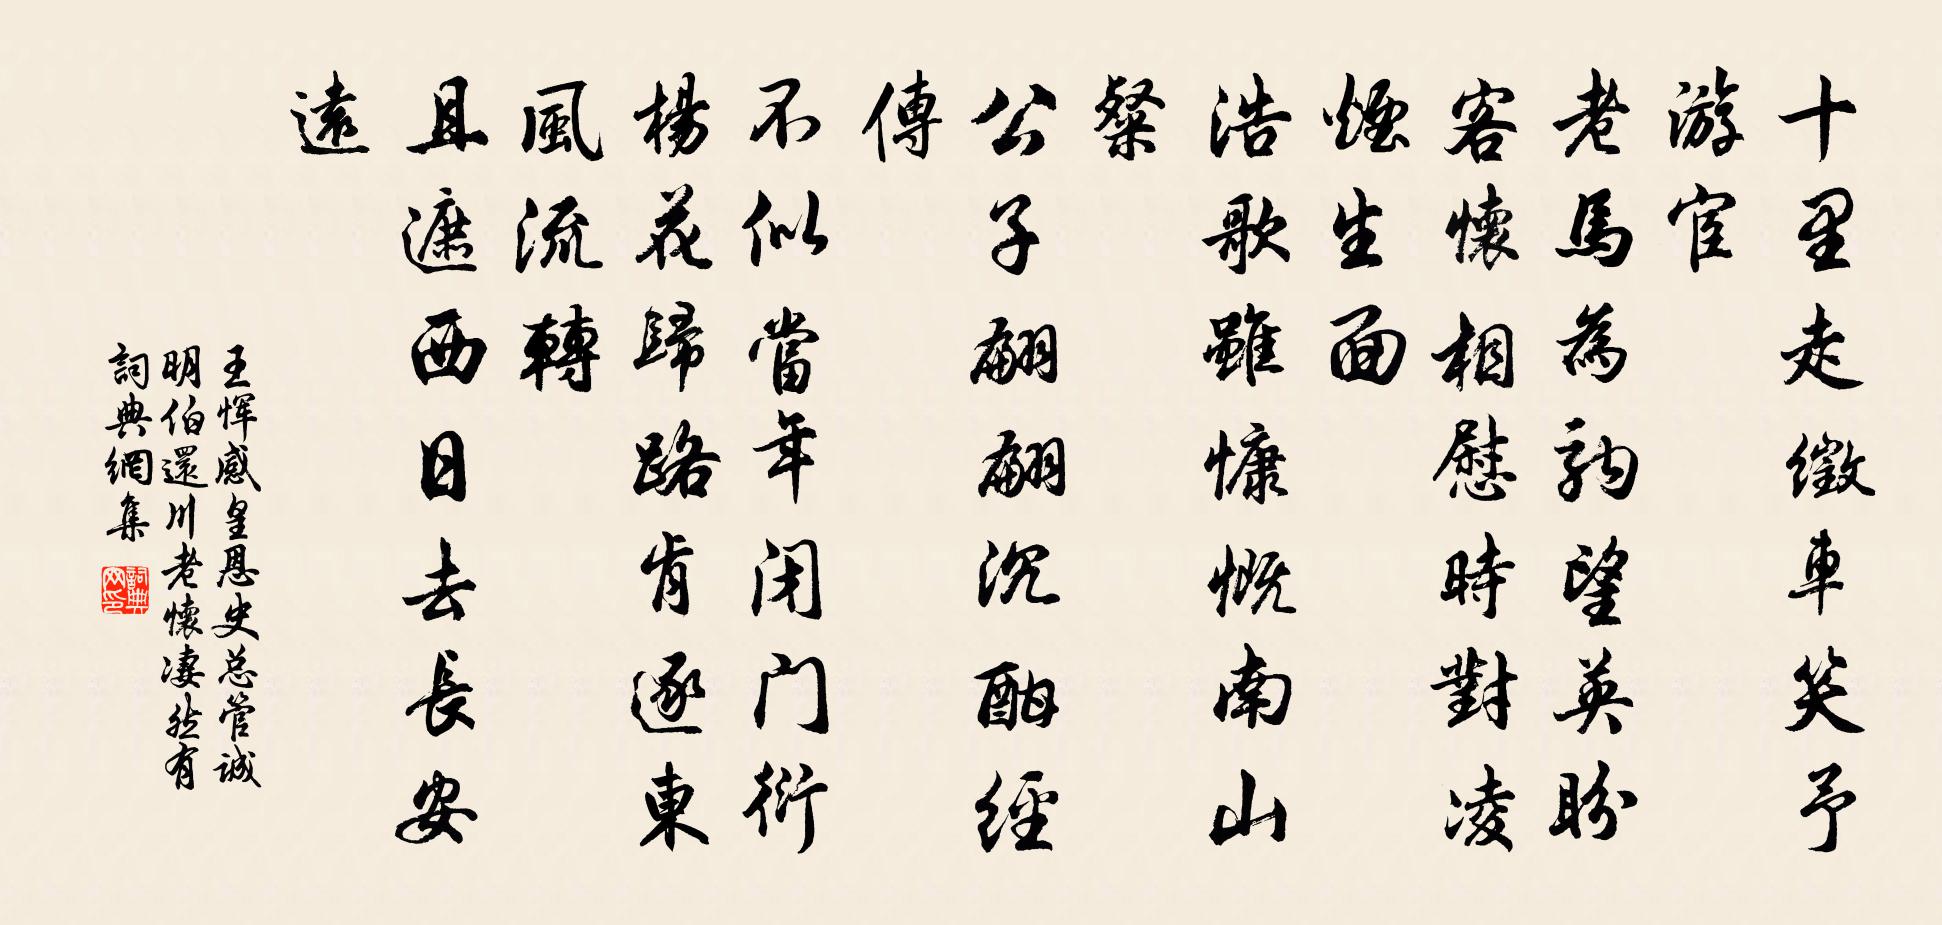 十里走徵車笑予
游宦
老馬為駒望英盼
客懷相慰時對凌
煙生面
浩歌雖慷慨南山
粲
公子翩翩沉酣經
傳
不似當年闭门衍
楊花歸路肯逐東
風流轉
且遮西日去長安
遠
王恽感皇恩史总管诚
明伯還川老懷凄然有
詞典網集
詞典
网印